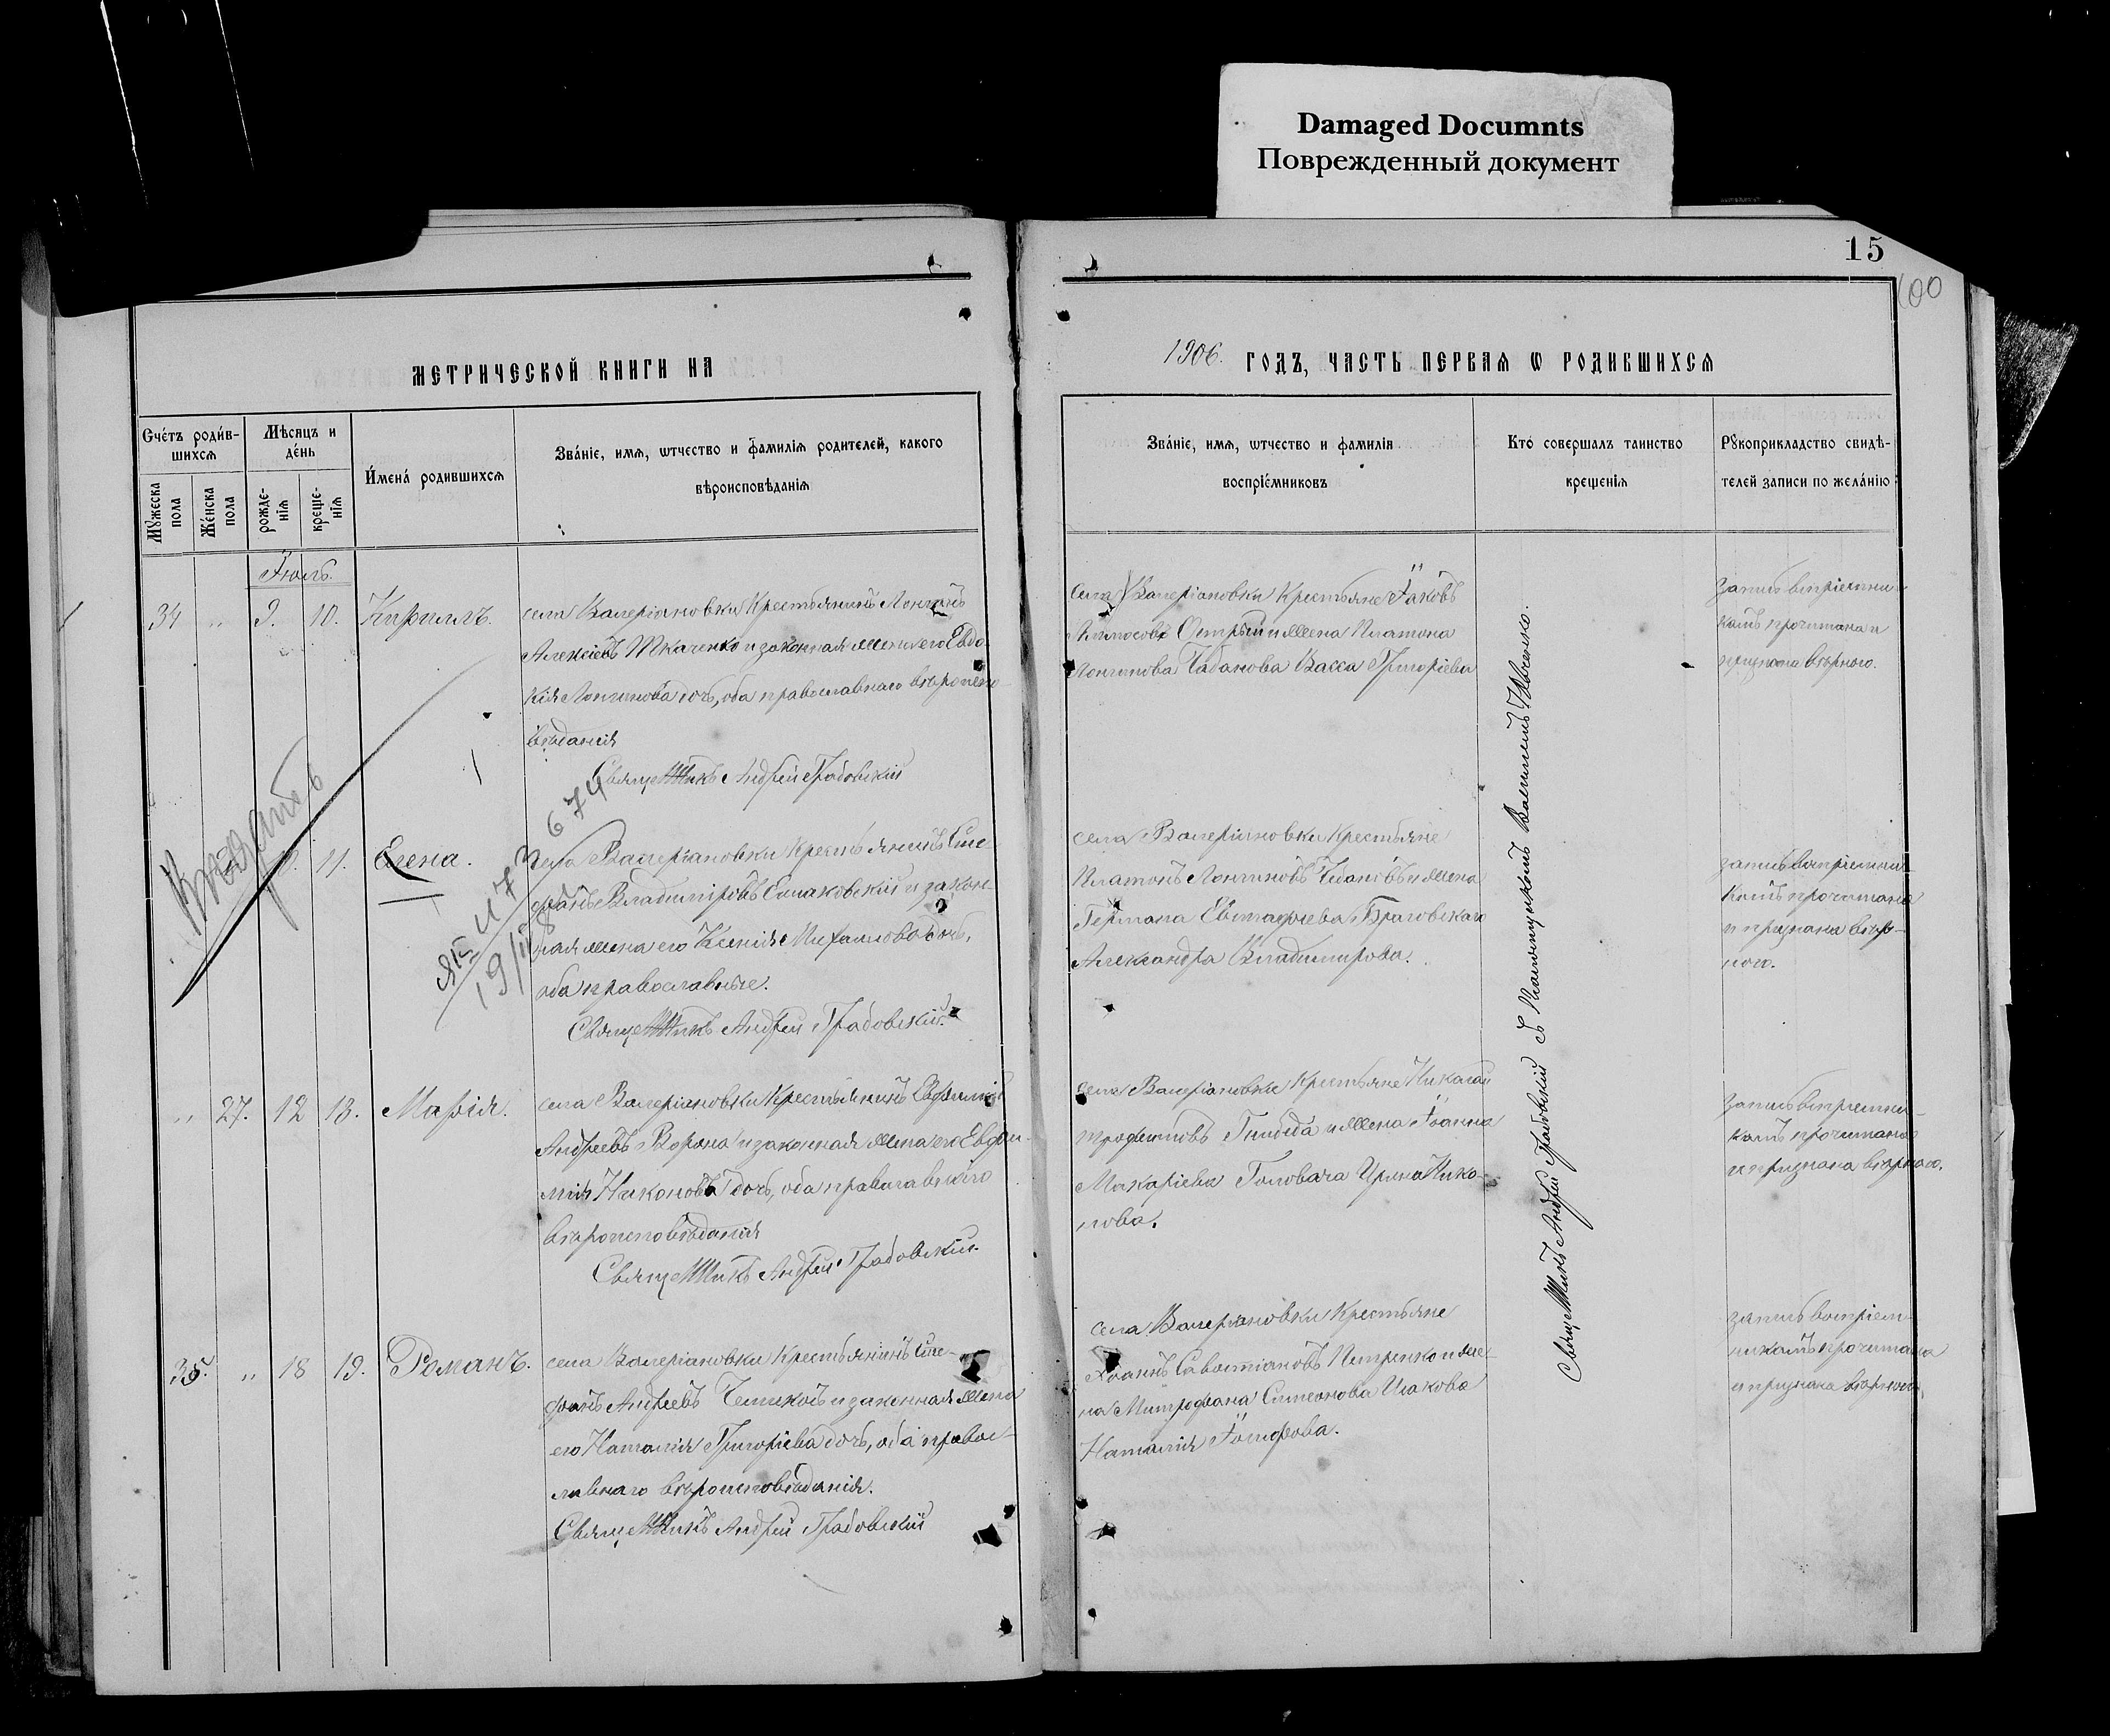 Damaged Documnts
Поврежденный документ
15
100
МЕТРИЧЕСКОЙ КНИГИ НА
1906. ГОДЪ, ЧАСТЬ ПЕРВАЯ Ѡ РОДИВШИХСѦ
Счéтъ роди́в-
шихсѧ
Мѣсяцъ и
дéнь
И́мена́ родившихсѧ
Звáнїе, имѧ, ѡтчество и фамилїѧ родителей, какого
вѣроисповѣданїѧ
Мꙋжеска
пола
Жéнска
пола
рожде-
нїѧ
креще-
нїѧ
Звáнїе, имѧ, ѡтчество и фамилїѧ
воспрїéмниковъ
Кто́ совершалъ таинство
крещенїѧ
Рꙋкоприкладство свидѣ-
телей записи по желáнїю
Іюль.
34 „ 9. 10. Кириллъ.
села Валеріановки Крестьянинъ Лонгинъ
Алексіевъ Ткаченко и законная жена его Евдо-
кія Лонгинова дочь, оба православнаго вѣроиспо-
вѣданія
Священникъ Андрей Градовскій
села Валеріановки Крестьяне Іаковъ
Острый и жена Платона
Лонгинова Чабанова Васса Григоріева
Запись воспріемни-
камъ прочитана и
признана вѣрною.
11. Елена.
674
села Валеріановки Крестьянинъ Сте-
фанъ Владиміровъ Ельковскій и закон-
ная жена его Ксенія Михаилова дочь,
оба православные.
Священникъ Андрей Градовскій.
села Валеріановки Крестьяне
Платонъ Лонгиновъ Чабановъ и жена
Германа Евстафіева Браговскаго
Александра Владимирова.
запись воспріемни-
камъ прочитана
и признана вѣр-
ною.
„ 27. 12 13. Марія.
села Валеріановки Крестьянинъ Евфимій
Андреевъ Ворона и законная жена его Евфи-
мія Никонова дочь, оба православнаго
вѣроисповѣданія
Священникъ Андрей Градовскій.
села Валеріановки Крестьяне Николай
Трофимовъ и жена Іоанна
Макаріева Головача Ирина Нико-
нова.
Запись воспріемни-
камъ прочитана
и признана вѣрною.
35. „ 18 19. Романъ.
села Валеріановки Крестьянинъ Сте-
фанъ Андреевъ и законная жена
его Наталія Григоріева дочь, оба правос-
лавнаго вѣроисповѣданія.
Священникъ Андрей Градовскій
села Валеріановки Крестьяне
Іоаннъ Савостіановъ Петренко и же-
на Митрофана Симеонова Исакова
Наталія Іосифова.
запись воспріем-
никамъ прочитана
и признана вѣрною.
Священникъ Андрей Градовскій съ Псаломщикомъ Василіемъ Ивченко.